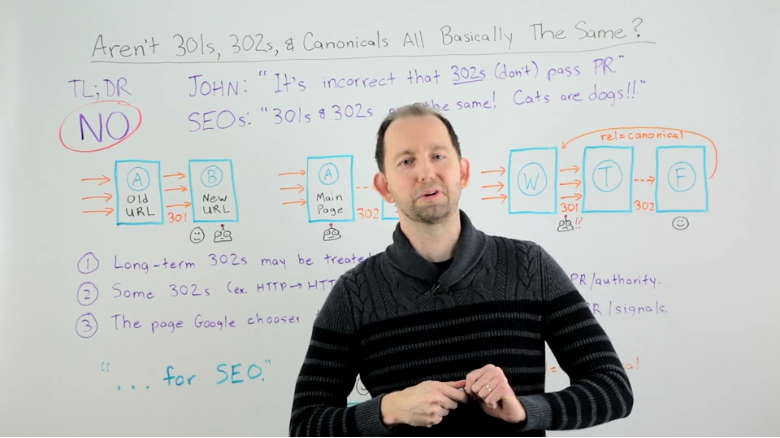 Aren't 301s, 302s, & Canonicals All Basically The Same?
TL;DR
NO
JOHN: "It's incorrect that 302s (don't) pass PR."
SEOs: "301s & 302s are the same! Cats are dogs!!"
rel=canonical
A
Old
URL
301
B
New
URL
A
Main
Page
302
W
301
!?
T
302
F
1 Long-term 302s may be treated
2 Some 302s (ex. HTTP → HTT PR/authority.
3 The page Google chooses PR/signals.
"... for SEO."